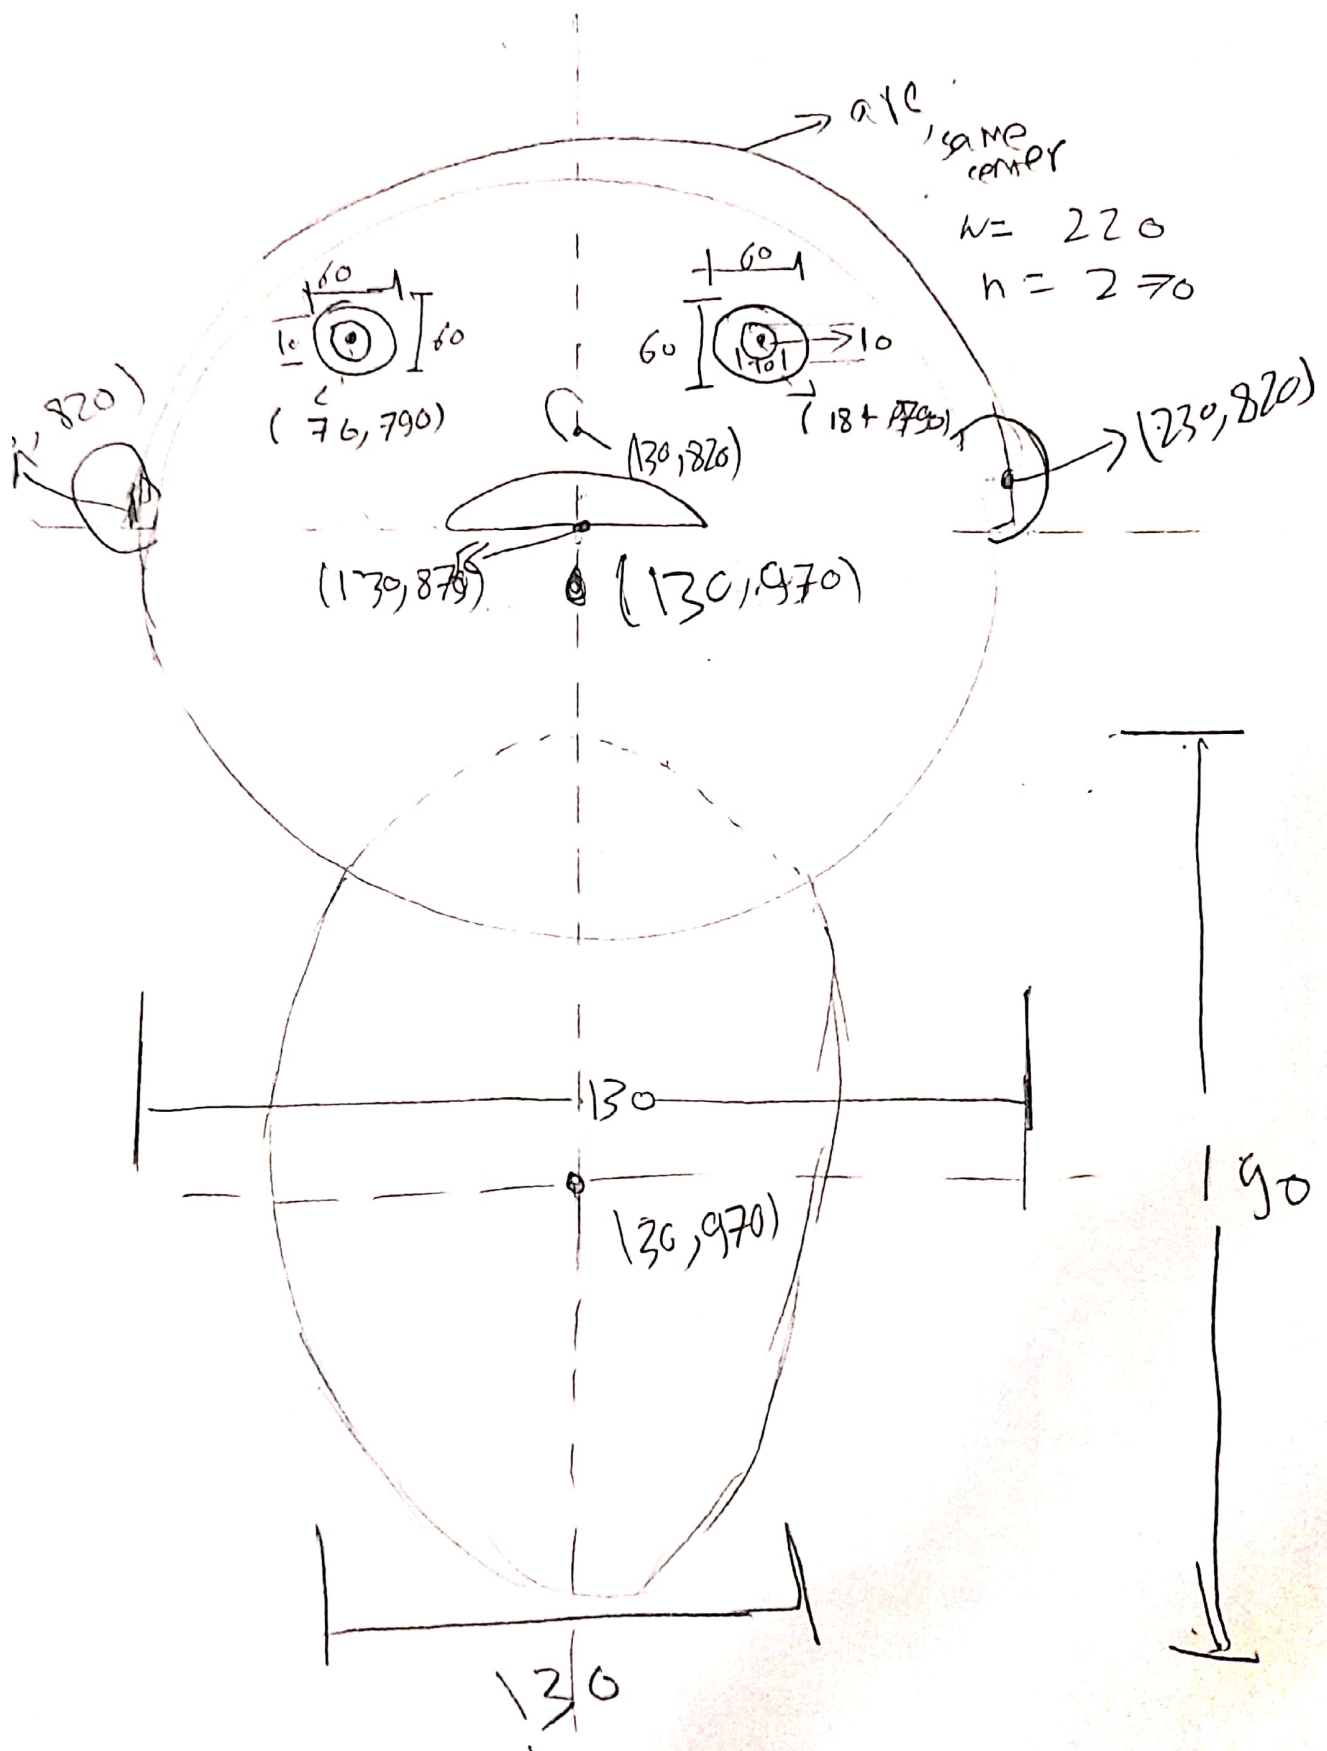 arc, same
center
w= 220
h = 270
60
60
10
60
60
10
10
(76,790)
(184,790)
, 820)
(130,820)
(230,820)
(130,870)
(130,970)
130
190
130,970)
130